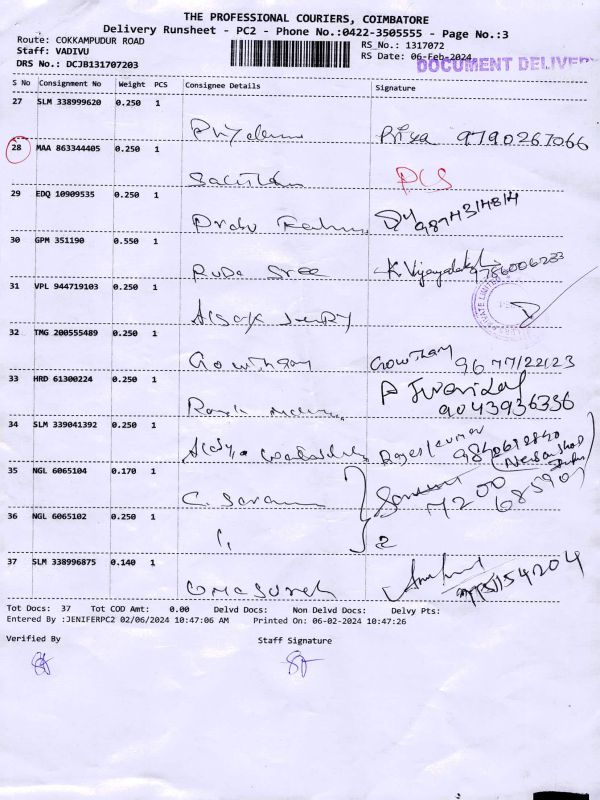 THE PROFESSIONAL COURIERS, COIMBATORE
Delivery Runsheet - PC2 - Phone No.:0422-3505555 - Page No.:3
Route: COKKAMPUDUR ROAD
RS_No.: 1317072
Staff: VADIVU
RS Date: 06-Feb-2024
DRS No.: DCJB131707203
DOCUMENT DELIVER
S No Consignment No Weight PCS Consignee Details Signature
27 SLM 338999620 0.250 1
Priya 9790267066
28 MAA 863344405 0.250 1
PCS
29 EDQ 10909535 0.250 1
30 GPM 351190 0.550 1
Rupa Sree K Vijayalakshmi 9786006233
31 VPL 944719103 0.250 1
32 TMG 200555489 0.250 1
Gowtham Gowtham
33 HRD 61300224 0.250 1
9043936336
34 SLM 339041392 0.250 1
Rajeshkumar
35 NGL 6065104 0.170 1
C. Saravana
36 NGL 6065102 0.250 1
37 SLM 338996875 0.140 1
Tot Docs: 37 Tot COD Amt: 0.00 Delvd Docs: Non Delvd Docs: Delvy Pts:
Entered By :JENIFERPC2 02/06/2024 10:47:06 AM Printed On: 06-02-2024 10:47:26
Verified By Staff Signature